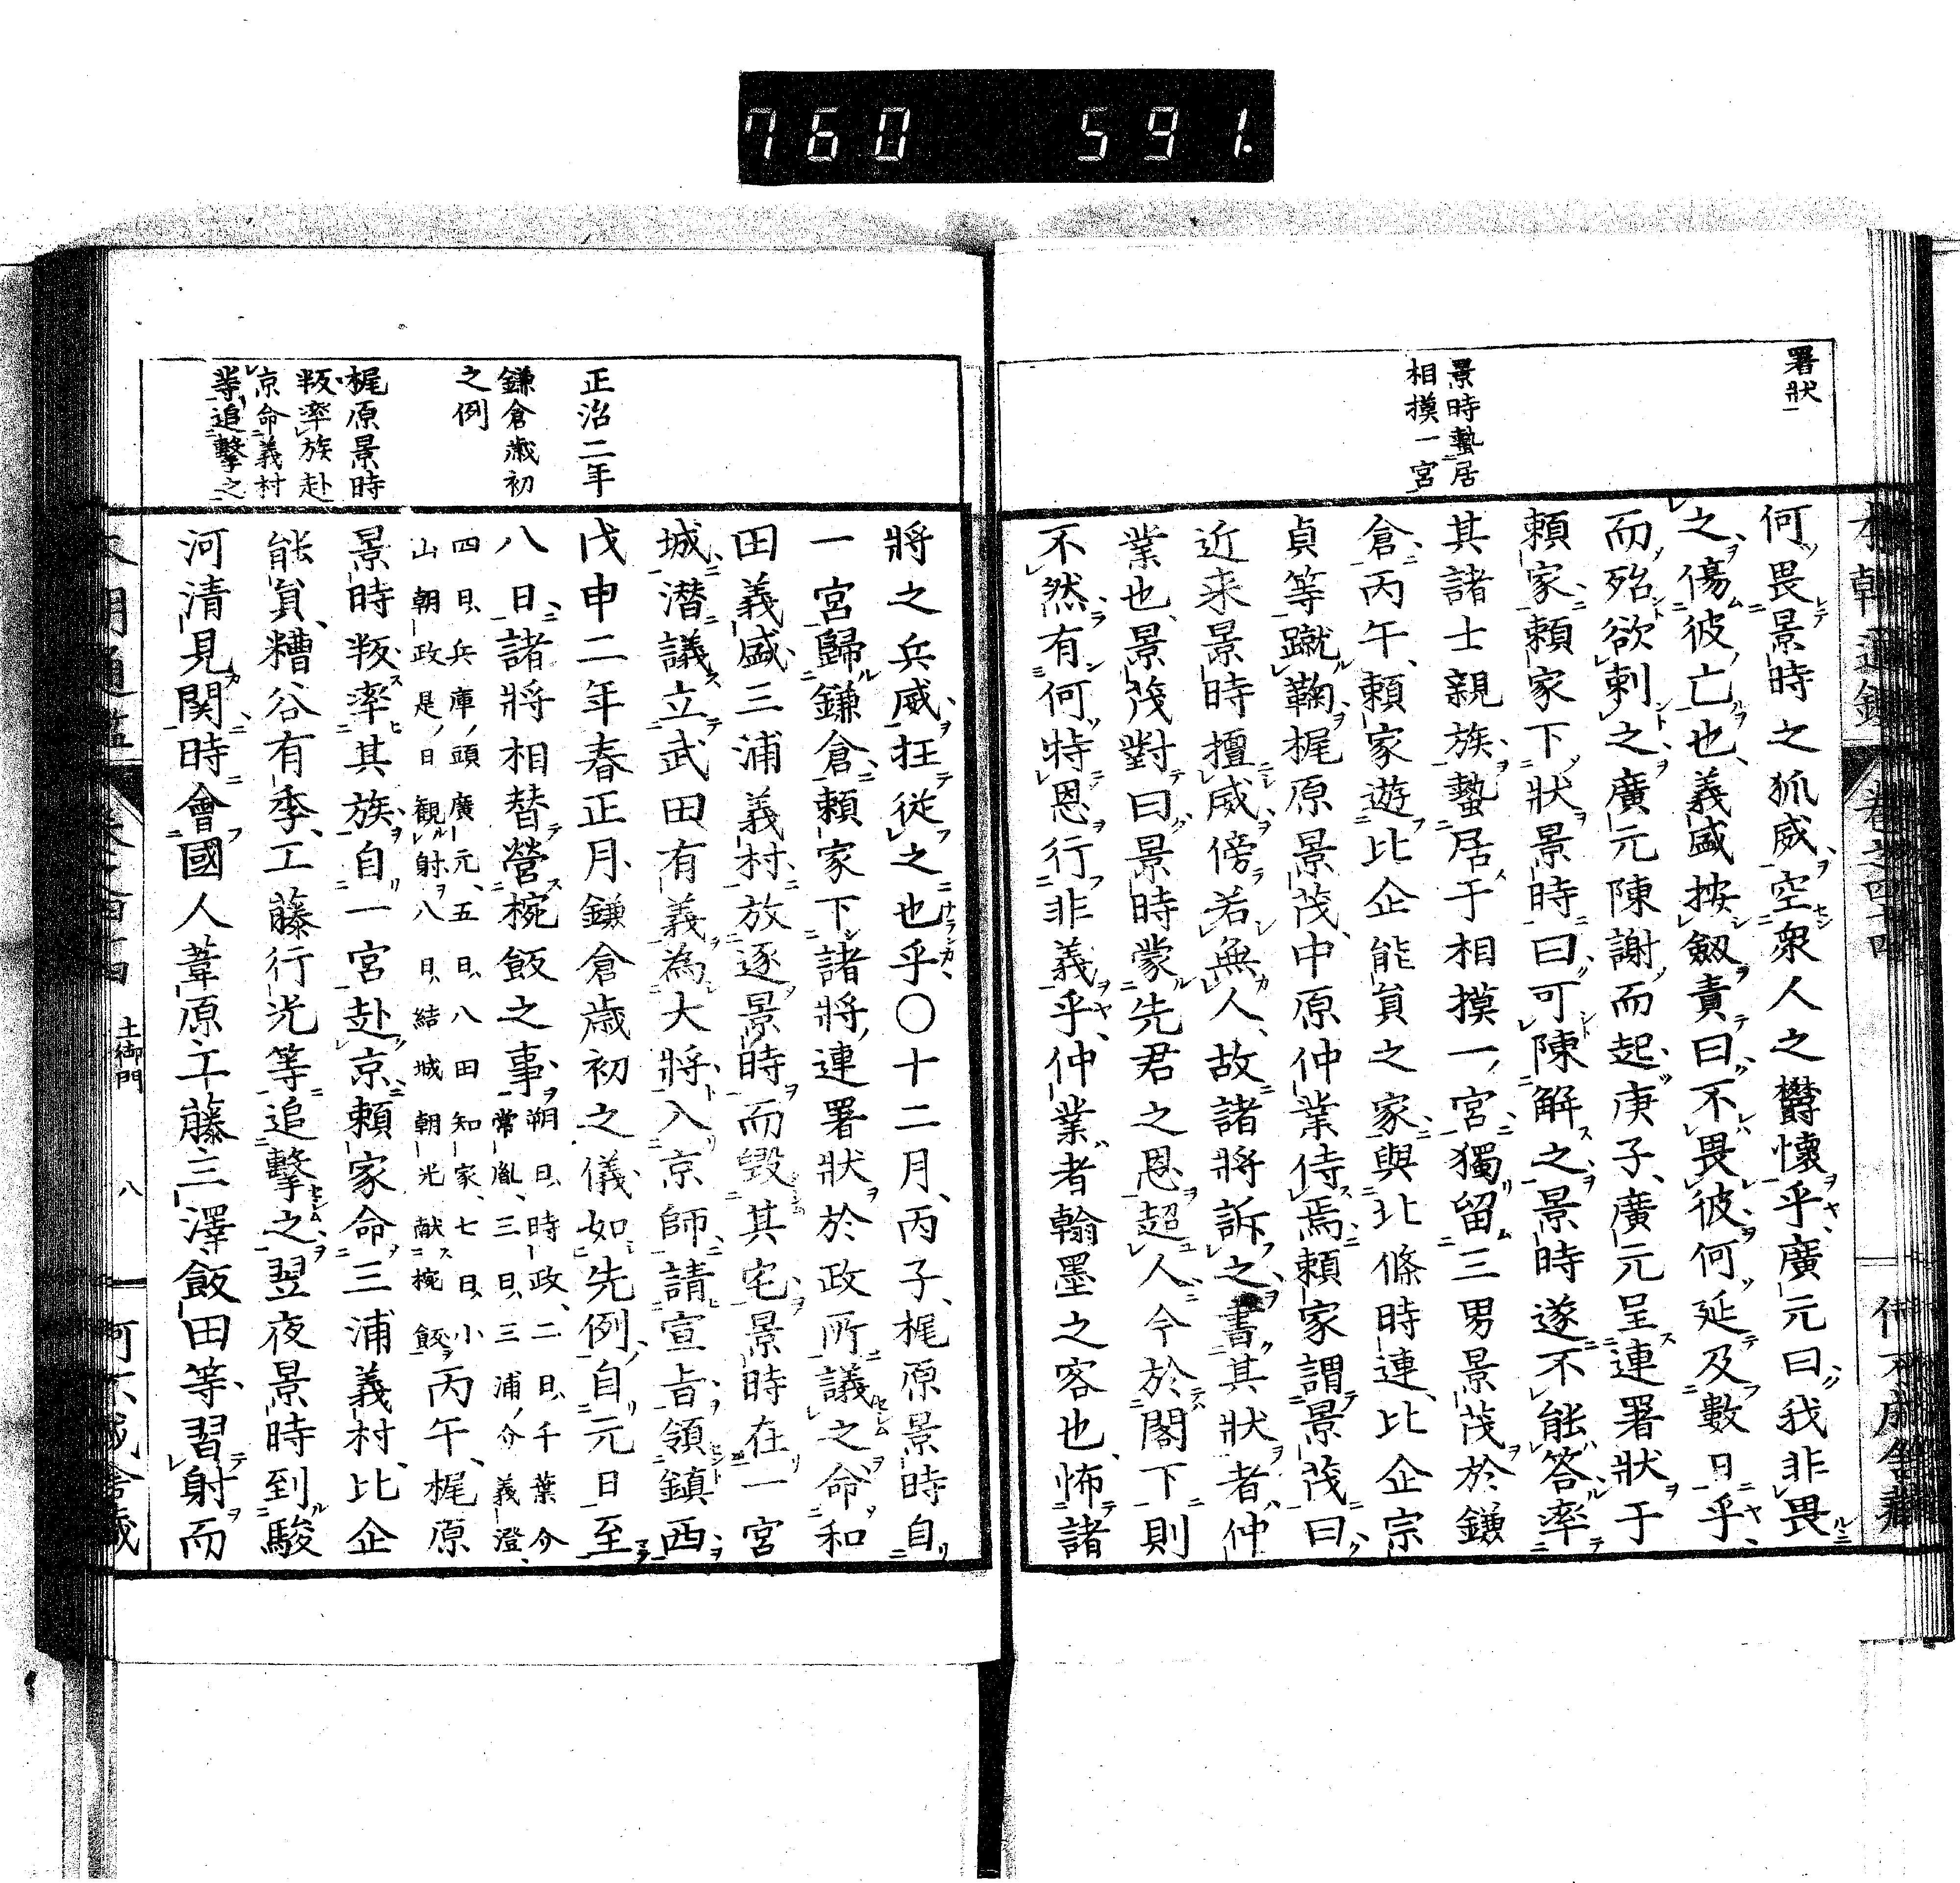 760 591.
署狀
景時蟄居
相摸一宮
何畏景時之狐威空衆人之欝懷乎廣元曰我非畏
之傷彼亡也義盛按劔責曰不畏彼何延及數日乎
而殆欲刺之廣元陳謝而起庚子廣元呈連署狀于
頼家頼家下狀景時曰可陳解之景時遂不能答率
其諸士親族蟄居于相摸一宮獨留三男景茂於鎌
倉丙午頼家遊比企能員之家與北條時連比企宗
貞等蹴鞠梶原景茂中原仲業侍焉頼家謂景茂曰
近来景時擅威傍若無人故諸將訴之書其狀者仲
業也景茂對曰景時蒙先君之恩超人今於閣下則
不然有何恃恩行非義乎仲業者翰墨之客也怖諸
正治二年
鎌倉歳初
之例
梶原景時
叛率族赴
京命義村
等追擊之
將之兵威枉從之也乎〇十二月丙子梶原景時自
一宮歸鎌倉頼家下諸將連署狀於政所議之命和
田義盛三浦義村放逐景時而毀其宅景時在一宮
城潜議立武田有義為大將入京師請宣旨領鎮西
戊申二年春正月鎌倉歳初之儀如先例自元日至
八日諸將相替營椀飯之事朔日時政二日千葉介
常胤三日三浦介義澄
四日兵庫頭廣元五日八田知家七日小
山朝政是日観射八日結城朝光献椀飯丙午梶原
景時叛率其族自一宮赴京頼家命三浦義村比企
能員糟谷有季工藤行光等追擊之翌夜景時到駿
河清見関時會國人葦原工藤三澤飯田等習射而
土御門
八